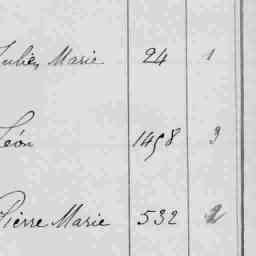 Jules, Marie 24 1
Léon 1498 3
Pierre Marie 532 2